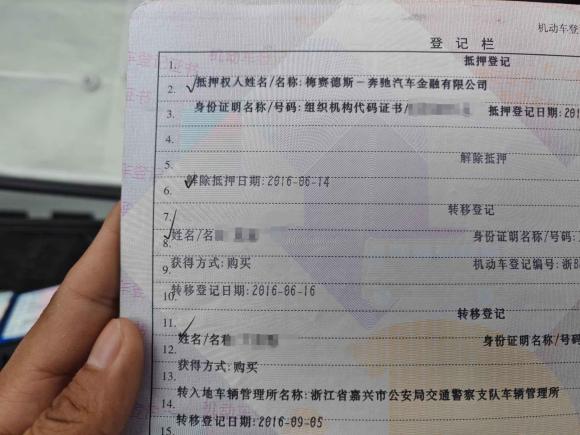 机动车登
登记栏
1. 抵押登记
2. 抵押权人姓名/名称:梅赛德斯－奔驰汽车金融有限公司
3. 身份证明名称/号码:组织机构代码证书/ 抵押登记日期:201
4.
5. 解除抵押
6. 解除抵押日期:2016-06-14
7. 转移登记
8. 姓名/名 身份证明名称/号码:
9. 获得方式:购买 机动车登记编号:浙B
10. 转移登记日期:2016-06-16
11. 转移登记
姓名/名称 身份证明名称/号码
12. 获得方式:购买
13.
14. 转入地车辆管理所名称:浙江省嘉兴市公安局交通警察支队车辆管理所
转移登记日期:2016-09-05
15.